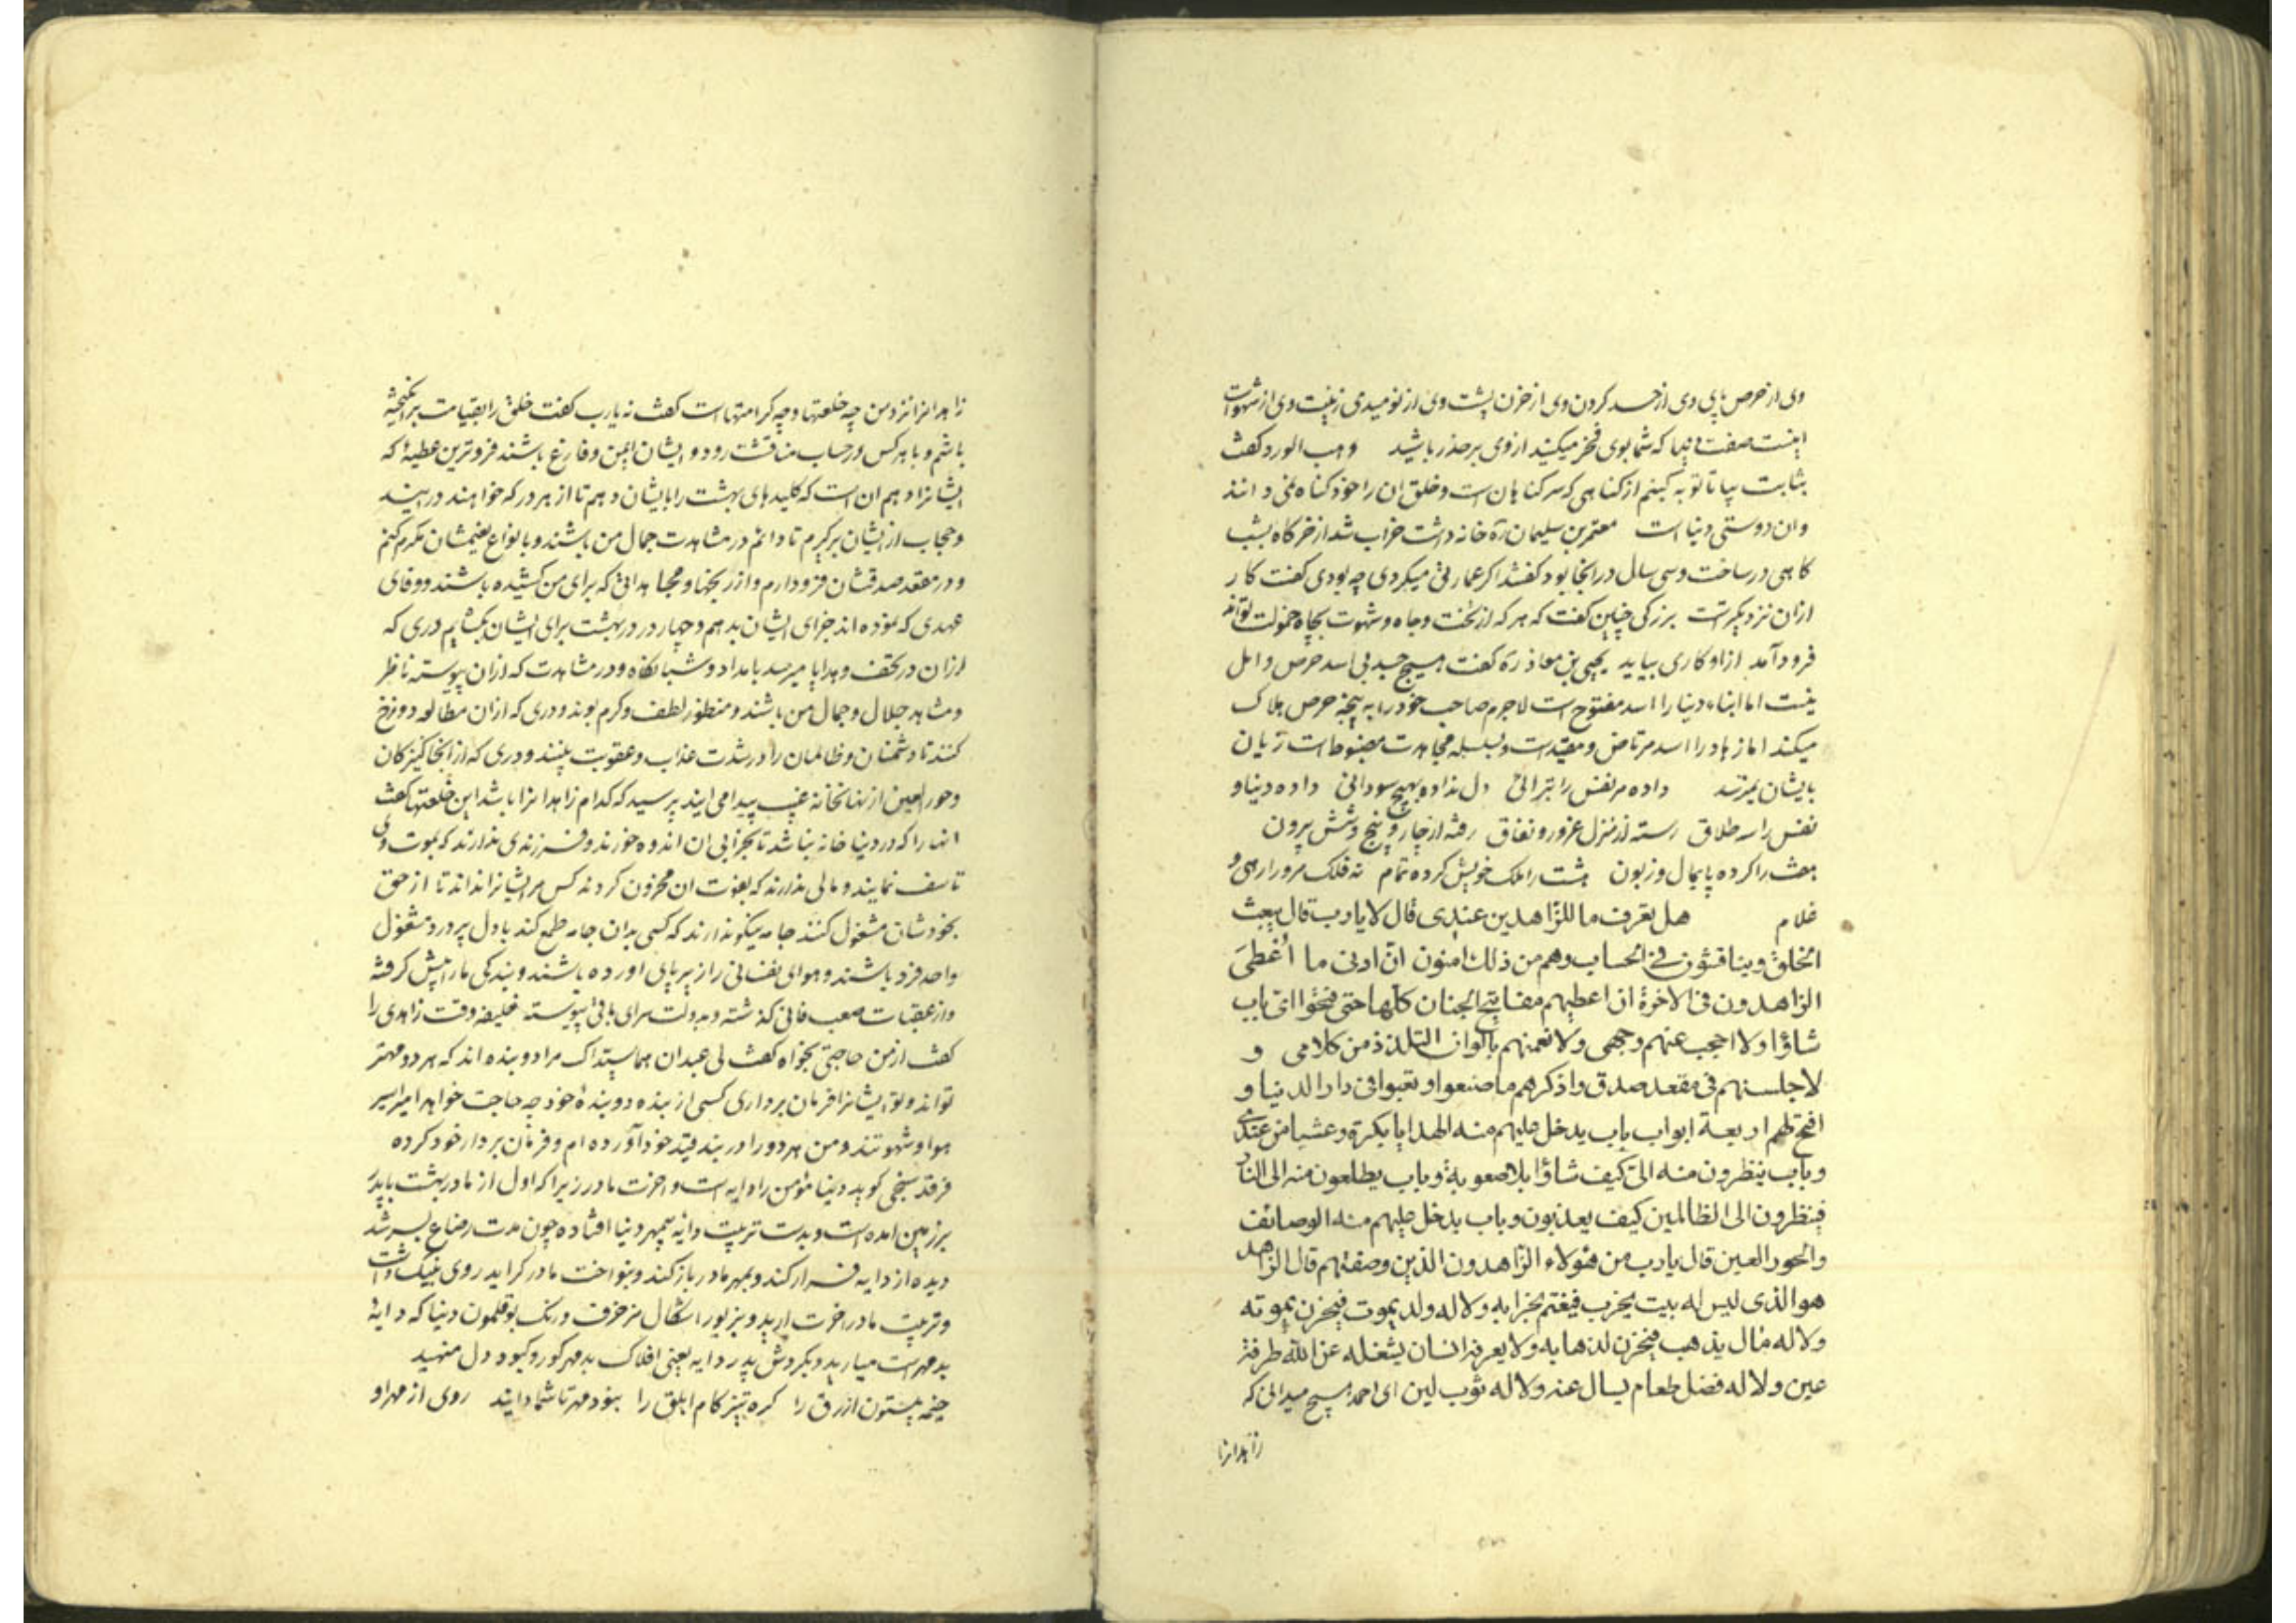 وی از حرص پای وی از حسد کردن وی از حزن پشت وی از نومیدی زینت وی از شهوات
اینست صفت دنیا که شما بوی فخر میکنید از وی بر حذر باشید وهب الورد کفت
بثابت بیا تا توبه کنیم از کناهی که سر کناهان است و خلق ان را خود کناه نمی دانند
و ان دوستی دنیا است معتمر بن سلیمان ره خانه داشت خراب شد از خرکاه بشب
کاهی در ساخت و سی سال در انجا بود کفتند اکر عمارتی میکردی چه بودی کفت کار
ازان نزدیکترست بزرکی چنین کفت که هر که از تخت و جاه و شهوت بچاه خمولت تواند
فرود آمد ازو کاری بیاید یحیی بن معاذ ره کفت هیچ جسد بی اسد حرص و امل
نیست اما ابناء دنیا را اسد مفتوح است لاجرم صاحب خود را به پنجه حرص هلاک
میکند اما زهاد را اسد مرتاض و مقیدست و بسلسله مجاهدت مضبوط است زیان
بایشان نمیرسد داده مر نفس را تبرائی دل نداده بهیچ سودائی داده دنیا و
نفس را سه طلاق رسته از منزل غرور و نفاق رفته از چار و پنج و شش بیرون
هفت را کرده پایمال و زبون هشت را ملک خویش کرده تمام نه فلک مرو را رهی و
غلام هل تعرف ما للزاهدین عندی قال لا یا رب قال یبعث
الخلق ویناقشون فی الحساب وهم من ذلك امنون ان ادنی ما اُعْطِیَ
الزاهدون فی الاخرة ان اعطیهم مفاتیح الجنان کلها حتی یفتحوا ای باب
شاؤا ولا احجب عنهم وجهی ولانعمنهم بالوان التلذذ من کلامی و
لاجلسنهم فی مقعد صدق واذکرهم ما صنعوا وتعبوا فی دار الدنیا و
افتح لهم اربعة ابواب باب یدخل علیهم منه الهدایا بکرة وعشیا من عندی
وباب ینظرون منه الیّ کیف شاؤا بلا صعوبة وباب یطلعون منه الی النار
فینظرون الی الظالمین کیف یعذبون وباب یدخل علیهم منه الوصائف
والحور العین قال یا رب من هؤلاء الزاهدون الذین وصفتهم قال الزاهد
هو الذی لیس له بیت یخرب فیغتم بخرابه ولا له ولد یموت فیحزن بموته
ولا له مال یذهب فیحزن لذهابه ولا یعرفه انسان یشغله عن الله طرفة
عین ولا له فضل طعام یسال عنه ولا له ثوب لین ای احمد هیچ میدانی که
زاهدانرا
زاهدانرا نزد من چه خلعتها و چه کرامتهاست کفت نه یا رب کفت خلق را بقیامت برانکیخته
باشم و با هر کس در حساب مناقشت رود و ایشان ایمن و فارغ باشند فروترین عطیهٔ که
ایشانرا دهم ان است که کلیدهای بهشت را بایشان دهم تا از هر در که خواهند در ایند
و حجاب از ایشان برکیرم تا دائم در مشاهدت جمال من باشند و بانواع نعیمشان مکرم کنم
و در مقعد صدقشان فرود ارم و از رنجها و مجاهداتی که برای من کشیده باشند و وفای
عهدی که نموده اند جزای ایشان بدهم و چهار در در بهشت برای ایشان بکشایم دری که
ازان در تحف و هدایا میرسد بامداد و شبانکاه و در مشاهدت که ازان پیوسته ناظر
و مشاهد جلال و جمال من باشند و منظور لطف و کرم بوند و دری که ازان مطالعه دوزخ
کنند تا دشمنان و ظالمان را در شدت عذاب و عقوبت بینند و دری که از انجا کنیزکان
و حور العین از نهانخانه غیب پیدا می ایند پرسید که کدام زاهدانرا باشد این خلعتها کفت
انها را که در دنیا خانه نباشد تا بخرابی ان اندوه خورند و فرزندی ندارند که بموت وی
تاسف نمایند و مالی ندارند که بفوت ان محزون کردند کس مر ایشانرا نداند تا از حق
بخودشان مشغول کنند جامه نیکو ندارند که کسی بدان جامه طمع کند با دل پر درد مشغول
واحد فرد باشند و هوای نفسانی را زیر پای اورده باشند و بندکی ما را پیش کرفته
و از عقبات صعب فانی کذشته و بدولت سرای باقی پیوسته خلیفه وقت زاهدی را
کفت از من حاجتی بخواه کفت لی عبدان هما سیداک مرا دو بنده اند که هر دو مهتر
تواند و تو ایشانرا فرمان برداری کسی از بنده دو بندهٔ خود چه حاجت خواهد امیر اسیر
هوا و شهوتند و من هر دو را در بند قید خود آورده ام و فرمان بردار خود کرده
فرقد سنجی کوید دنیا مؤمن را دایه است و اخرت مادر زیرا که اول از مادر بهشت با پدر
بر زمین امده است و بدست تربیت دایه سپهر دنیا افتاده چون مدت رضاع بسر شد
دیده از دایه فراز کند و بمهر مادر باز کند و بنواخت مادر کراید روی بنیک داشت
و تربیت مادر اخرت ارید و بزیور اشکال مزخرف و رنک بوقلمون دنیا که دایهٔ
بد مهرست میارید و بکردش پدر دایه یعنی افلاک بد مهر کور و کبود دل منهید
خیمه بیستون ازرق را کره تیز کام ابلق را نبود مهر تا شما دایند روی از مهر او